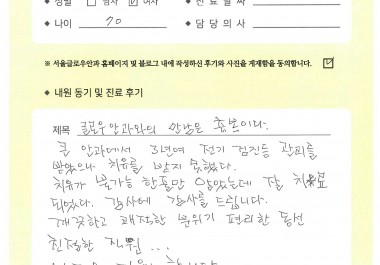 ◆ 성별 □ 남자 ☑ 여자 ◆ 진료날짜
◆ 나이 70 ◆ 담당의사
※ 서울글로우안과 홈페이지 및 블로그 내에 작성하신 후기와 사진을 게재함을 동의합니다. ☑
◆ 내원 동기 및 진료 후기
제목 글로우안과와의 만남은 축복이다.
큰 안과에서 3년여 정기 검진등 관리를
받았으나 치유를 받지 못했다.
치유가 불가능 한줄만 알았는데 잘 치료
되었다. 감사에 감사를 드립니다.
깨끗하고 쾌적한 분위기 편리한 동선
친절한 직원 ...